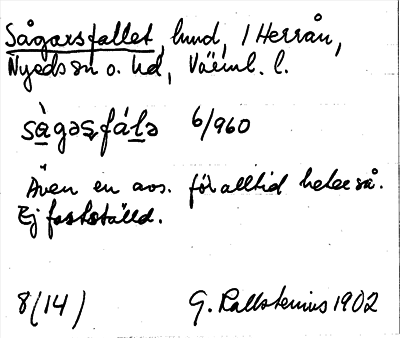 Sågarsfallet, hund, i Herrån,
Nyeds sn o. hd, Värml. l.
sàgəs̨fálə 6/960
Även en avs. för alltid heter så.
Ej fastställd.
8(14) G. Kallstenius 1902